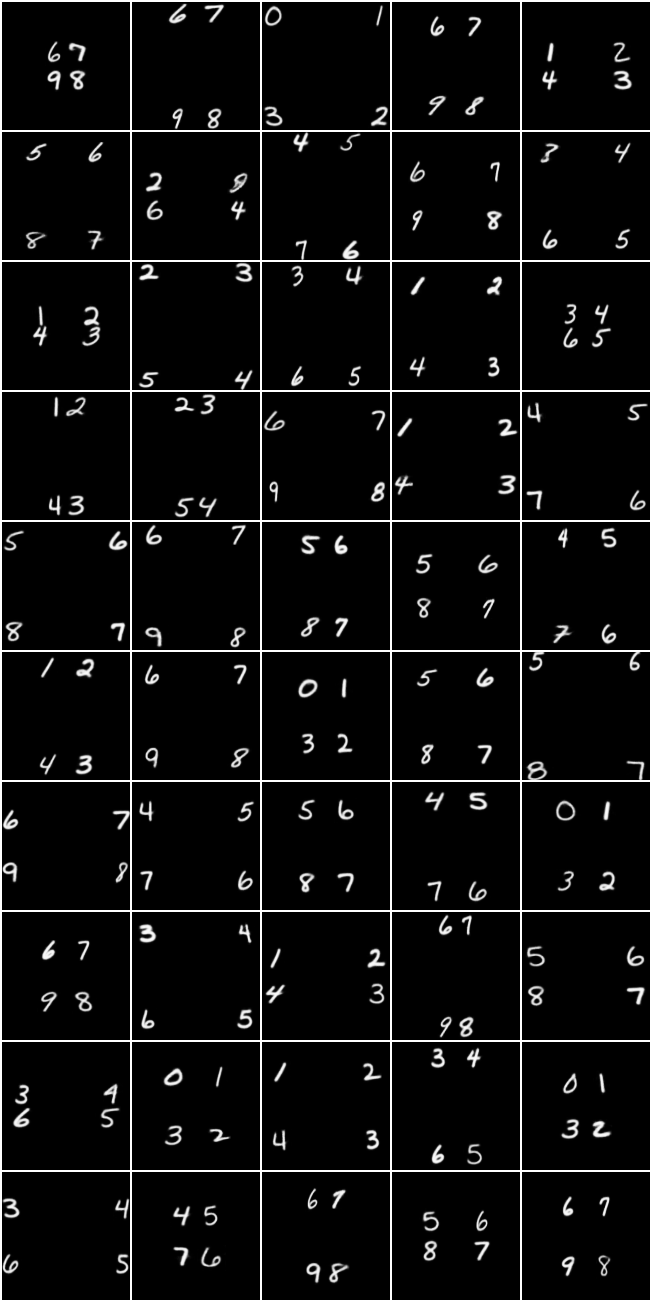 6 7
9 8
6 7
9 8
0 1
3 2
6 7
9 8
1 2
4 3
5 6
8 7
2
6 4
4 5
7 6
6 7
9 8
3 4
6 5
1 2
4 3
2 3
5 4
3 4
6 5
1 2
4 3
3 4
6 5
1 2
4 3
2 3
5 4
6 7
9 8
1 2
4 3
4 5
7 6
5 6
8 7
6 7
9 8
5 6
8 7
5 6
8 7
4 5
7 6
1 2
4 3
6 7
9 8
0 1
3 2
5 6
8 7
5 6
8 7
6 7
9 8
4 5
7 6
5 6
8 7
4 5
7 6
0 1
3 2
6 7
9 8
3 4
6 5
1 2
4 3
6 7
9 8
5 6
8 7
3 4
6 5
0 1
3 2
1 2
4 3
3 4
6 5
0 1
3 2
3 4
6 5
4 5
7 6
6 7
9 8
5 6
8 7
6 7
9 8